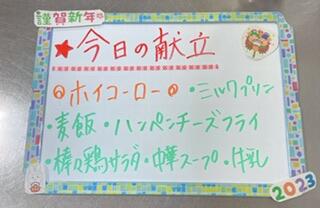 謹賀新年
★今日の献立
◎ホイコーロー◎ ・ミルクプリン
・麦飯 ・ハンペンチーズフライ
・棒々鶏サラダ ・中華スープ ・牛乳
2023